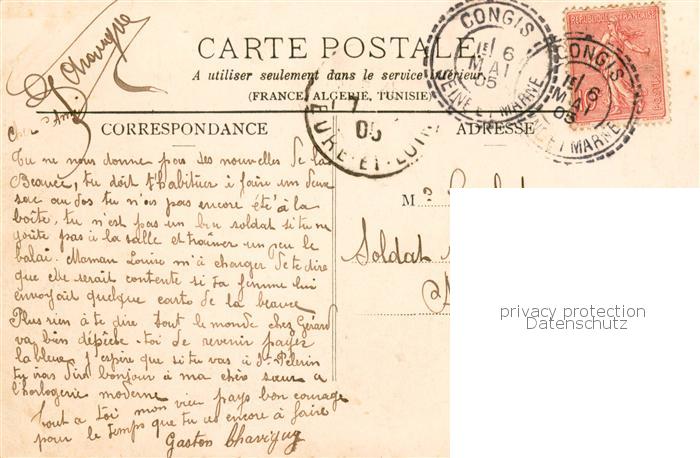 CARTE POSTALE
A utiliser seulement dans le service intérieur
(FRANCE, ALGERIE, TUNISIE)
CONGIS
6
MAI
05
SEINE ET MARNE
CONGIS
6
MAI
05
SEINE ET MARNE
REPUBLIQUE FRANÇAISE
05
EURE-ET-LOIR
CORRESPONDANCE
ADRESSE
Cher Ami
Tu ne nous donne pas des nouvelles de la
Beauce, tu doit t'habituer à faire un
sac au dos tu n'as pas encore été à la
boite, tu n'est pas un bon soldat si tu ne
goûte pas à la salle et trainer un peu le
balai. Maman Louise m'a charger de te dire
que elle serait contente si ta femme lui
envoyait quelque carte de la beauce
Plus rien à te dire tout le monde chez Gérard
va bien dépêche-toi de revenir payer
la bleue, j'espire que si tu vas à St-Pélerin
tu iras dire bonjour à ma chère sœur a
l'horlogerie moderne
mon vieu pays bon courage
tout a toi
pour le temps que tu as encore à faire
Gaston Chavigny
M
Soldat
privacy protection
Datenschutz